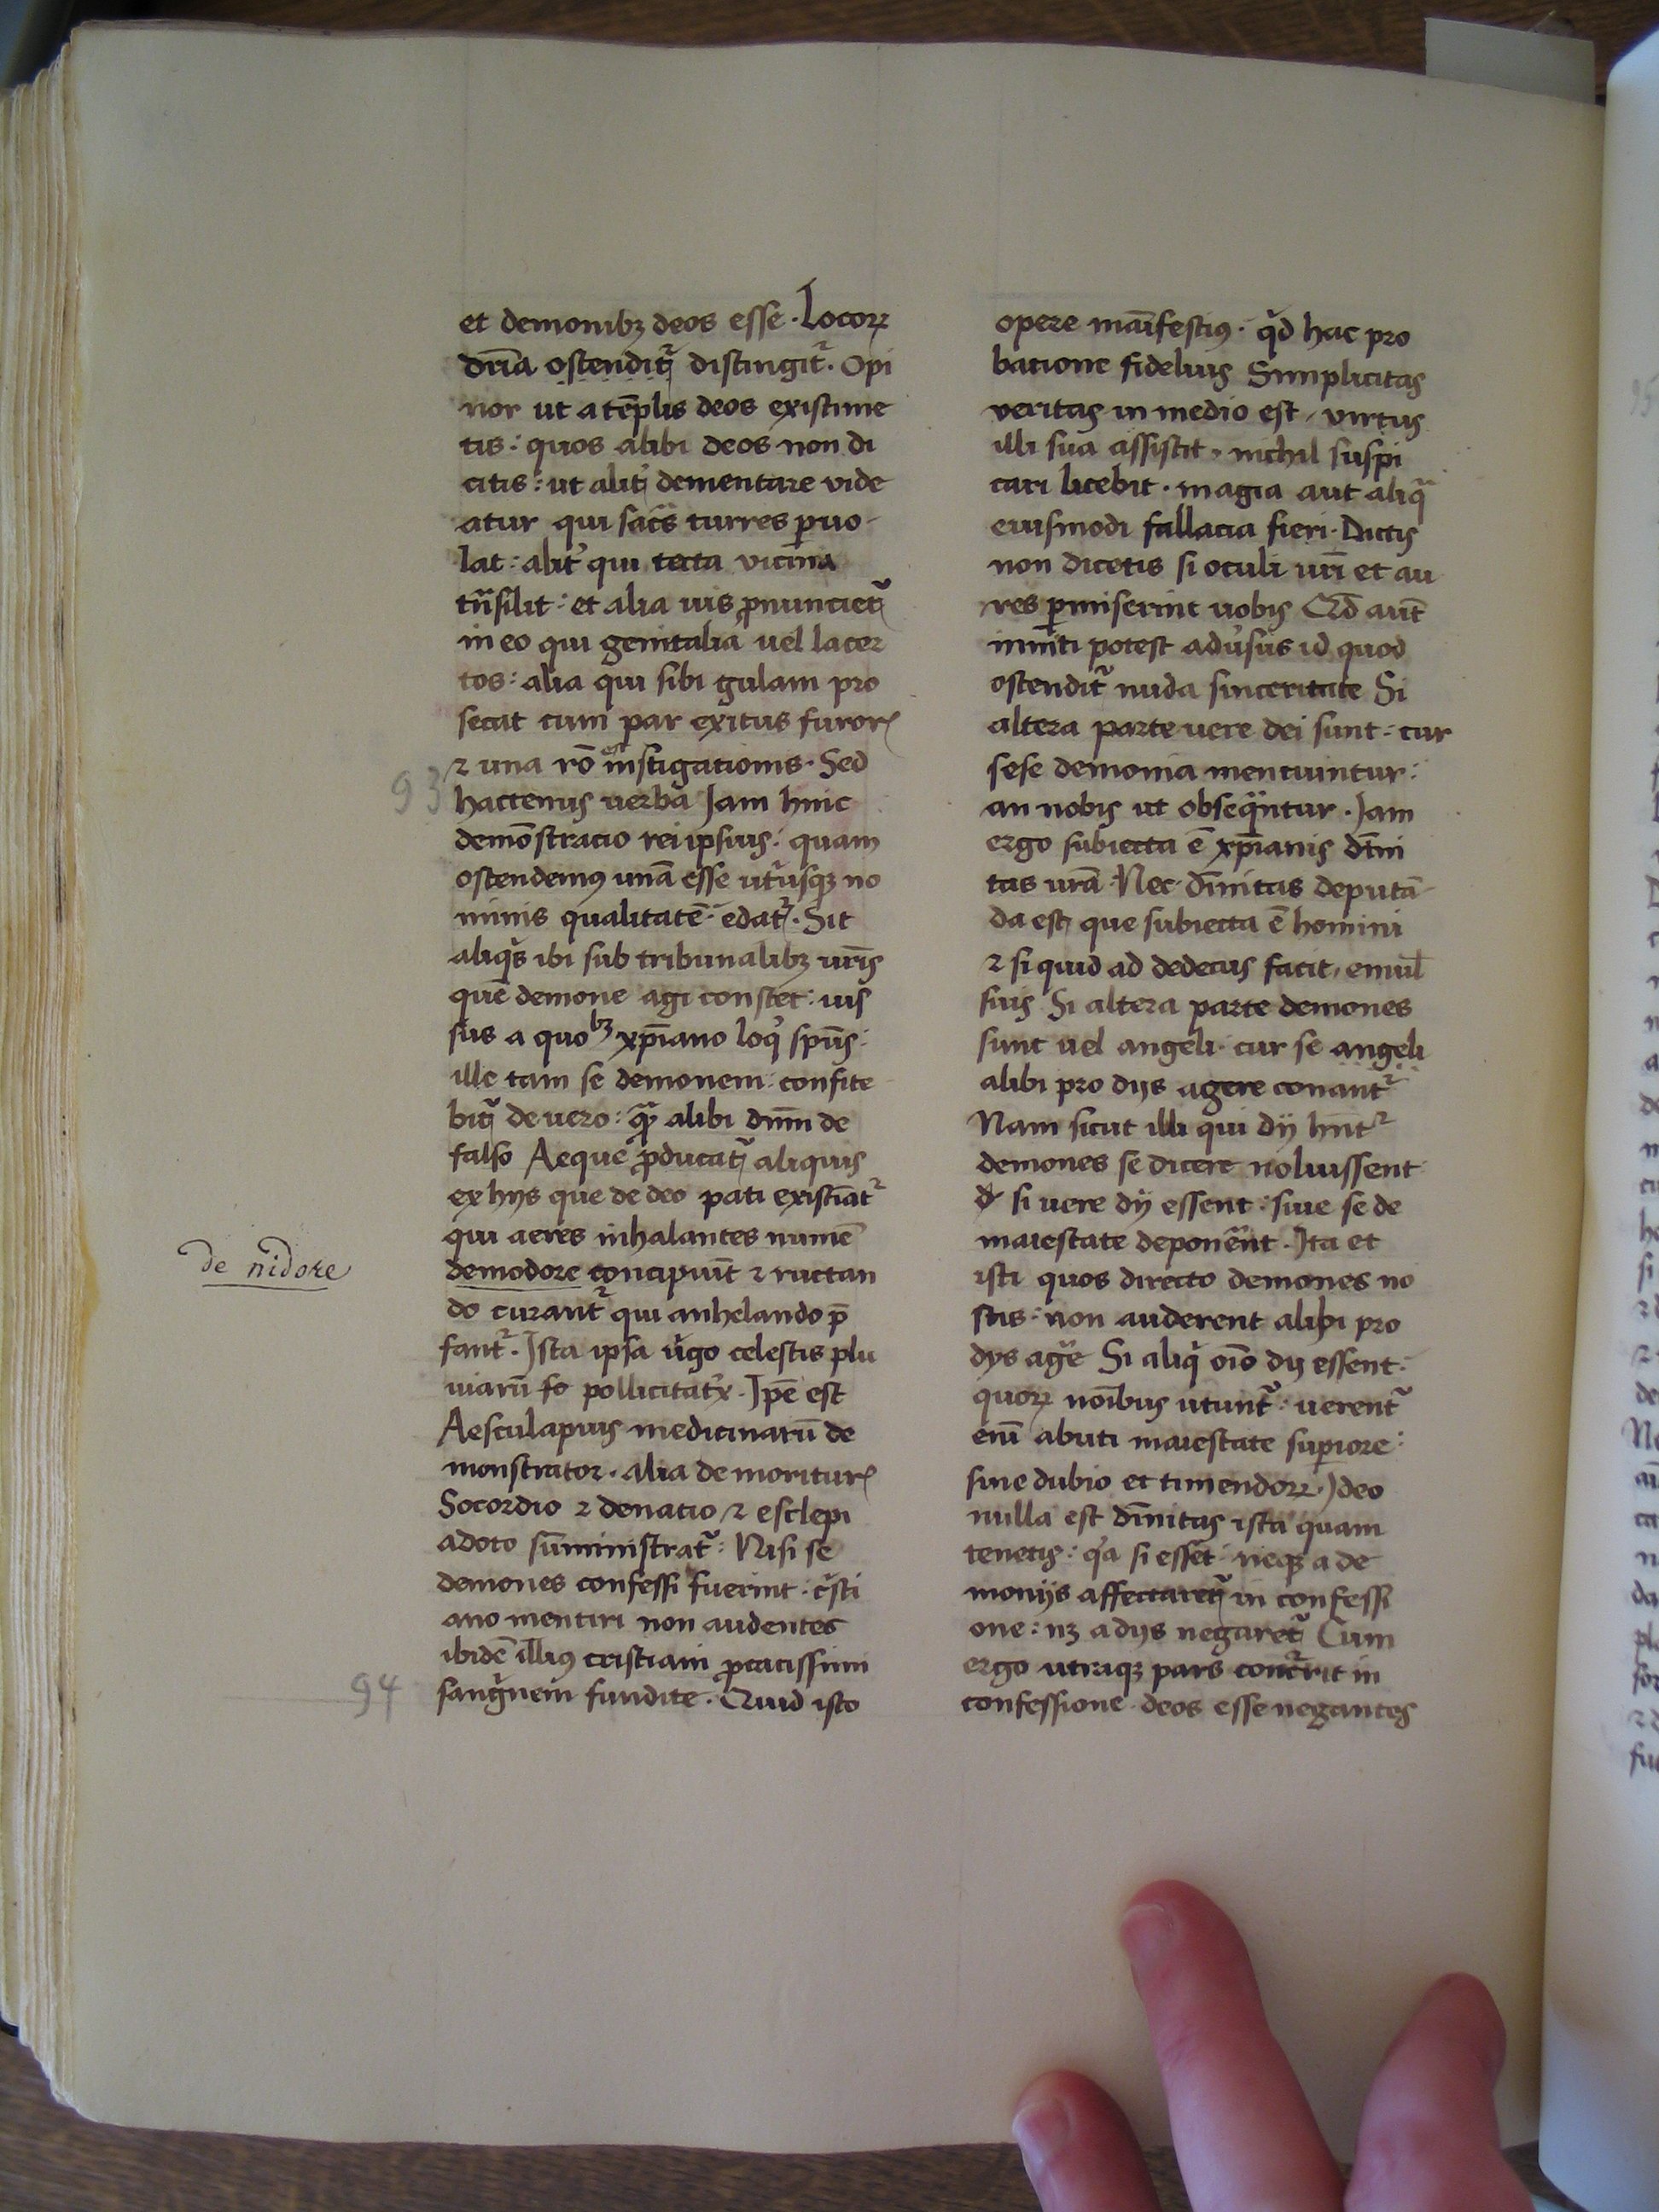 et demonibꝫ deos esse · Locoꝝ
dr̃ia ostenditꝭ distingit᷑ · Opi
nor ut a tẽplis deos existime
tis : quos alibi deos non di
citis : ut alit᷑ dementare vide
atur qui sac̃s turres puo-
lat : alit᷑ qui tecta vicina
tñsilit : et alia uis ꝓnunciet᷑
in eo qui genitalia uel lacer
tos : alia qui sibi gulam pro
secat cum par exitus furorꝭ
⁊ una rõ instigationis · Sed
93
hactenus uerba Jam hinc
demõstracio rei ipsius : quam
ostendemꝰ unã esse ut᷑usqꝫ no
minis qualitatẽ · edat᷑ · Sit
aliqͥs ibi sub tribunalibꝫ ur̃is
quẽ demone agi constet : uis
sus a quobꝫ xp̃iano loqͥ sp̃us :
ille tam se demonem : confite
bit᷑ de uero : qͣꝫ alibi dnm̃ de
falso Aeque ꝓducat᷑ aliquis
ex hijs que de deo pati existĩat᷑
qui aeres inhalantes numẽ
de nidore
demodore concipiuñt ⁊ ructan
do curant᷑ qui anhelando p̃
fant᷑ · Jsta ipsa uͥgo celestis plu
uiarũ fo pollicitat᷑x · Jp̃e est
Aesculapius medicinarũ de
monstrator · alia de moriturꝭ
Socordio ⁊ denatio ⁊ esclepi
adoto sũministrat᷑ : Nisi se
demones confessi fuerint · cͥsti
ano mentiri non audentes
ibidẽ illiꝰ cristiani ꝓcacissimi
94
sangͥnem fundite · Quid isto
opere mãifestiꝰ · qͥd hac pro
batione fidelius Simplicitas
veritas in medio est , virtus
illi sua assistit , nichil suspi
cari licebit · magia aut aliqͣ
euismodi fallacia fieri · Dictis
non dicetis si oculi ur̃i et au
res ꝑmiserint uobis Qd̃ aut̃
inniti potest adũsus id quod
ostendit᷑ nuda sinceritate Si
altera parte uere dei sunt : cur
sese demonia mentiuintur :
an nobis ut obseqͣntur · Jam
ergo subiecta ẽ xp̃ianis dĩni
tas ur̃a · Nec dĩnitas deputã-
da est que subiecta ẽ homini
⁊ si quid ad dedecus facit , emul̃
suis Si altera parte demones
sunt uel angeli · cur se angeli
alibi pro dijs agere conant᷑
Nam sicut illi qui dij hñt᷑
demones se dicere noluissent
si uere dij essent : siue se de
maiestate deponẽrent · Jta et
isti quos directo demones no
stis : non auderent alibi pro
dijs agẽ Si aliqͥ oĩo dij essent ·
quoꝝ noĩbus utunt᷑ : uerent᷑
eniĩ abuti maiestate supiore :
sine dubio et timendoꝝ · Jdeo
nulla est dĩnitas ista quam
tenetis : qͥa si esset · neqꝫ a de
monijs affectaret᷑ in confessi
one : nꝫ a dijs negaret᷑ Cum
ergo utraqꝫ pars conc᷑rit in
confessione · deos esse negantes